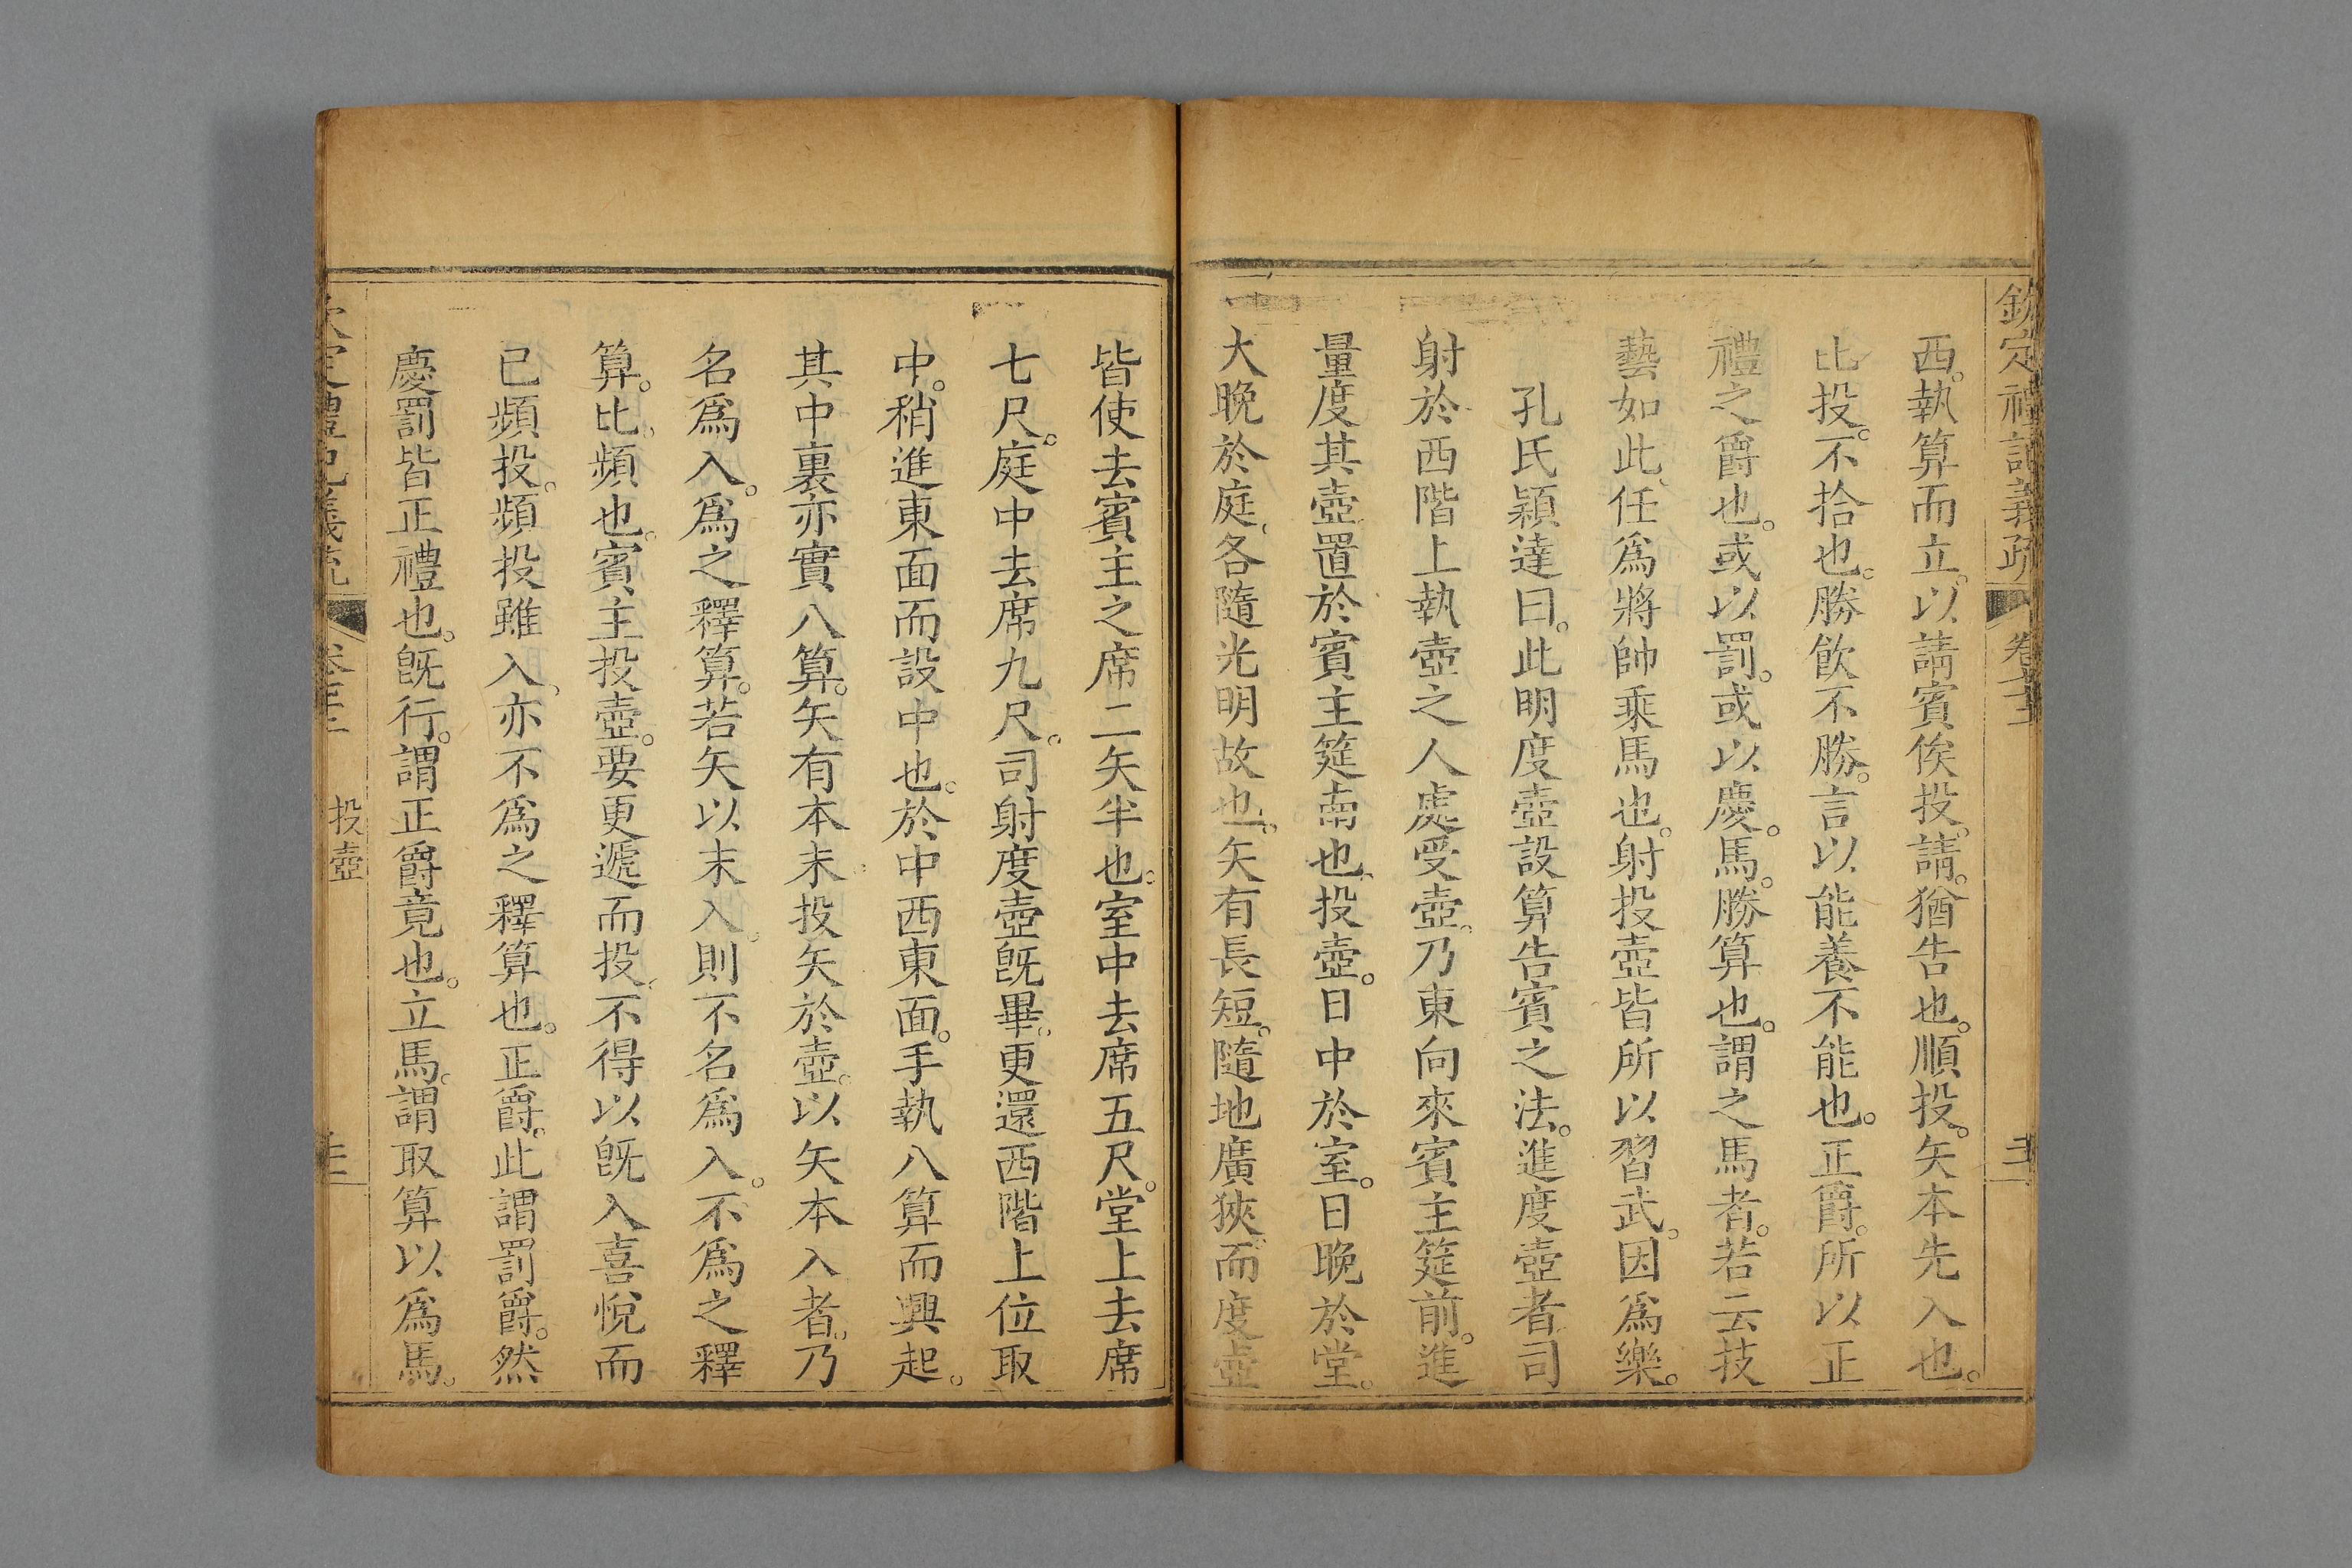 欽定禮記義疏 卷
西。執算而立。以請賓俟投。請。猶告也。順投。矢本先入也。
比投。不拾也。勝飲不勝。言以能養不能也。正爵。所以正
禮之爵也。或以罰。或以慶。馬。勝算也。謂之馬者。若云技
藝如此、任爲將帥乘馬也。射投壺皆所以習武。因爲樂。
孔氏穎達曰。此明度壺設算告賓之法。進度壺者。司
射於西階上執壺之人處受壺。乃東向來賓主筵前。進
量度其壺。置於賓主筵南也、投壺。日中於室。日晚於堂。
大晚於庭、各隨光明故也。矢有長短。隨地廣狹。而度壺
皆使去賓主之席二矢半也。室中去席五尺。堂上去席
七尺。庭中去席九尺。司射度壺既畢。更還西階上位取
中。稍進東面而設中也。於中西東面。手執八算而興起。
其中裏亦實八算。矢有本末。投矢於壺。以矢本入者。乃
名爲入。爲之釋算。若矢以末入。則不名爲入。不爲之釋
算。比、頻也。賓主投壺。要更遞而投、不得以既入喜悅而
已頻投。頻投雖入、亦不爲之釋算也。正爵。此謂罰爵。然
慶罰皆正禮也。既行。謂正爵竟也。立馬。謂取算以爲馬。
投壺